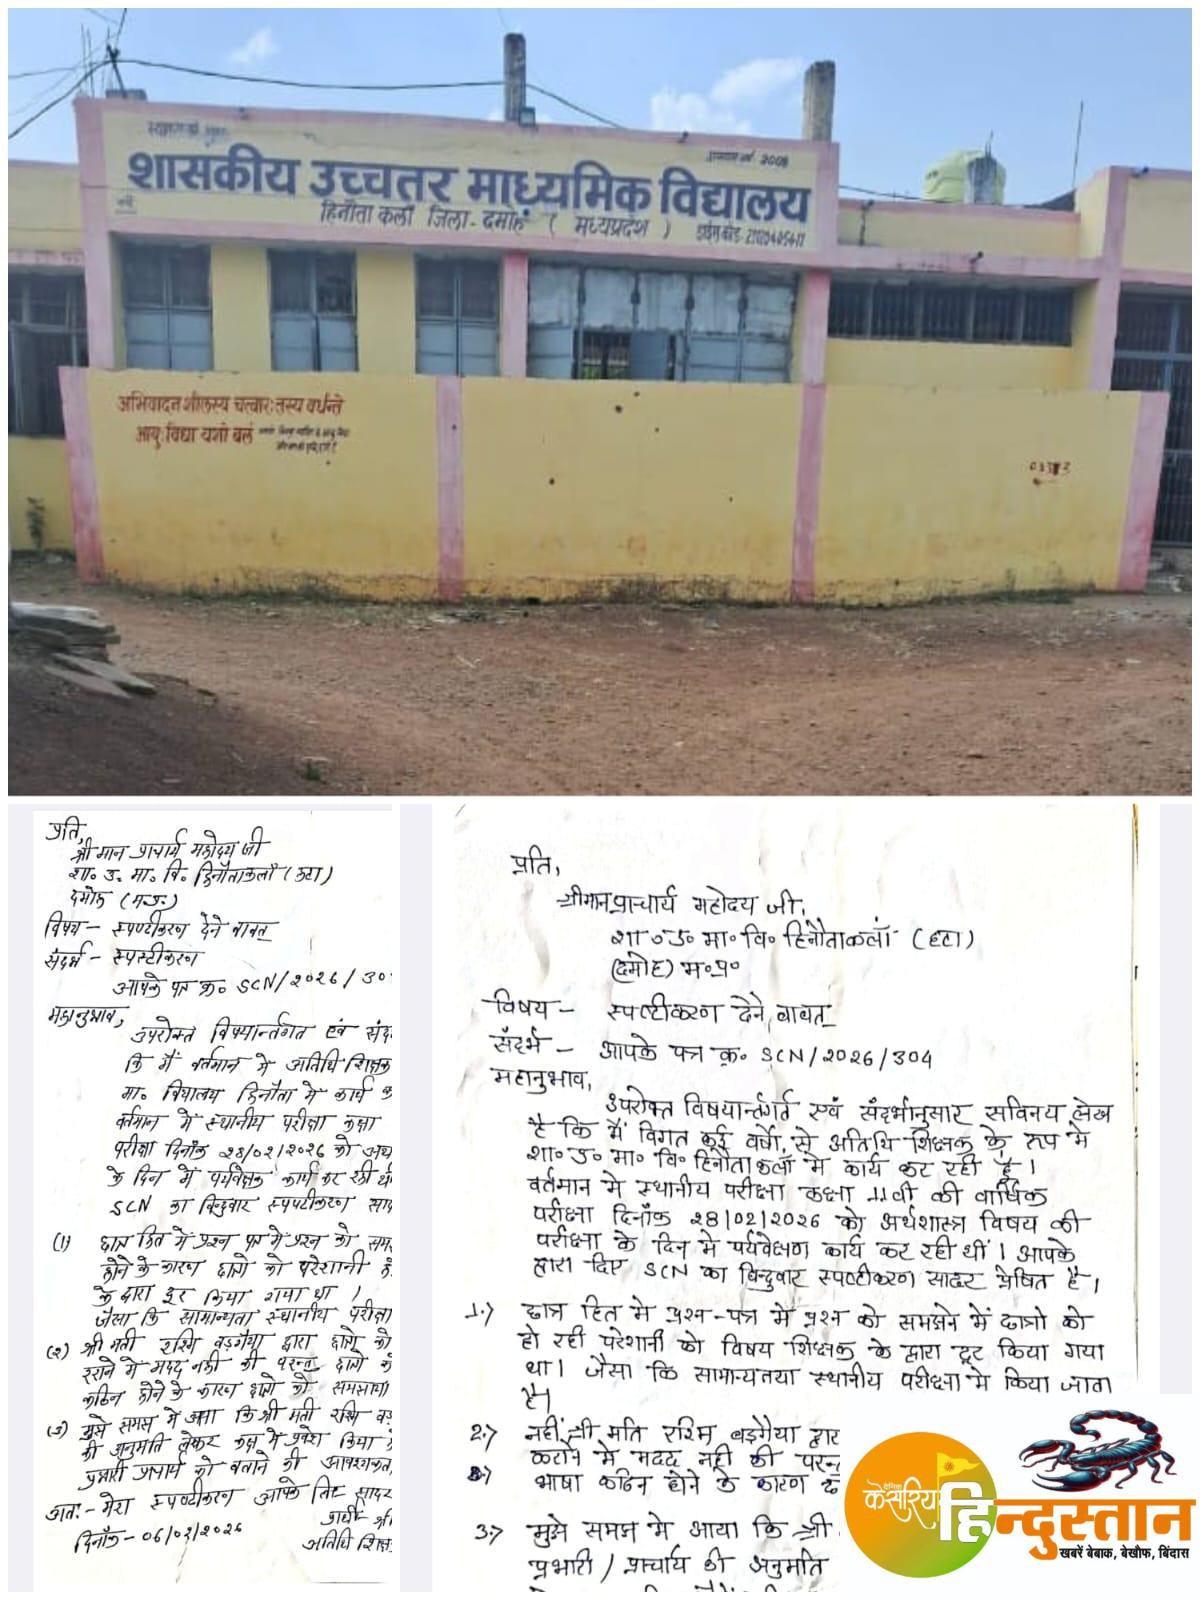 शासकीय उच्चतर माध्यमिक विद्यालय
हिनौता कलाँ जिला-दमोह ( मध्यप्रदेश )
2008
अभिवादन शीलस्य चत्वारः तस्य वर्धन्ते
आयुः विद्या यशो बलं
प्रति,
श्री मान प्राचार्य महोदय जी
शा० उ. मा. वि. हिनौताकलाँ (हटा)
दमोह (म.प्र.)
विषय - स्पष्टीकरण देने बावत्
संदर्भ - स्पस्टीकरण
आपके पत्र क्र० SCN/2026/30
महानुभाव,
उपरोक्त विषयान्तर्गत एवं संद
कि मैं वर्तमान मे अतिथि शिक्षक
मा. विद्यालय हिनौता मे कार्य क
वर्तमान मे स्थानीय परीक्षा कक्षा
परीक्षा दिनाँक 28/02/2026 को अथ
के दिन मे पर्यवेक्षक कार्य कर रही थी
SCN का बिन्दुवार स्पष्टीकरण साद
(1) छात्र हित मे प्रश्न पत्र मे प्रश्न को समझ
होने के कारण छात्रो को परेशानी
के द्वारा दूर किया गया था।
जैसा कि सामान्यता स्थानीय परीक्षा
(2) श्री मती रश्मि बड़गैया द्वारा छात्रो को
कराने मे मदद नही की परन्तु छात्रो
कठिन होने के कारण छात्रो को समझाया
(3) मुझे समझ मे आया कि श्री मती रश्मि बड़
की अनुमति लेकर कक्ष मे प्रवेश किया
प्रभारी प्राचार्य को बताने की आवश्यकत
अतः - मेरा स्पष्टीकरण आपके लिए सादर
प्रार्थी - श्री
दिनाँक - 06/02/2026
अतिथि शिक्ष
प्रति,
श्रीमान प्राचार्य महोदय जी,
शा० उ० मा० वि० हिनौताकलाँ (हटा)
(दमोह) म० प्र०
विषय - स्पष्टीकरण देने बावत्
संदर्भ - आपके पत्र क्र. SCN/2026/304
महानुभाव,
उपरोक्त विषयान्तर्गत एवं संदर्भानुसार सविनय लेख
है कि मैं विगत कई वर्षो से अतिथि शिक्षक के रूप मे
शा० उ० मा० वि० हिनौता कलाँ मे कार्य कर रही हूँ।
वर्तमान मे स्थानीय परीक्षा कक्षा 11वी की वार्षिक
परीक्षा दिनाँक 28/02/2026 को अर्थशास्त्र विषय की
परीक्षा के दिन मे पर्यवेक्षण कार्य कर रही थी। आपके
द्वारा दिए SCN का बिन्दुवार स्पष्टीकरण सादर प्रेषित है।
1.) छात्र हित मे प्रश्न-पत्र में प्रश्न को समझने में छात्रो को
हो रही परेशानी को विषय शिक्षक के द्वारा दूर किया गया
था। जैसा कि सामान्यतया स्थानीय परीक्षा मे किया जाता
है।
2.) नहीं श्री मति रश्मि बड़गैया द्वार
कराने मे मदद नही की परन
भाषा कठिन होने के कारण छ
3.) मुझे समझ मे आया कि श्री
प्रभारी / प्राचार्य की अनुमति
दैनिक
केसरिया
हिन्दुस्तान
खबरें बेबाक, बेखौफ, बिंदास